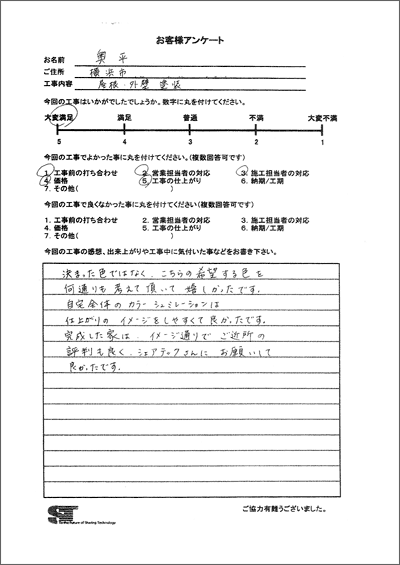 お客様アンケート
お名前 奥平
ご住所 横浜市
工事内容 屋根・外壁 塗装
今回の工事はいかがでしたでしょうか。数字に丸を付けてください。
大変満足 満足 普通 不満 大変不満
5 4 3 2 1
今回の工事でよかった事に丸を付けてください。(複数回答可です)
1. 工事前の打ち合わせ 2. 営業担当者の対応 3. 施工担当者の対応
4. 価格 5. 工事の仕上がり 6. 納期/工期
7. その他( )
今回の工事で良くなかった事に丸を付けてください(複数回答可です)
1. 工事前の打ち合わせ 2. 営業担当者の対応 3. 施工担当者の対応
4. 価格 5. 工事の仕上がり 6. 納期/工期
7. その他( )
今回の工事の感想、出来上がりや工事中に気付いた事などをお書き下さい。
決まった色ではなく、こちらの希望する色を
何通りも考えて頂いて嬉しかったです。
自宅全体のカラーシュミレーションは
仕上がりのイメージをしやすくて良かったです。
完成した家は、イメージ通りでご近所の
評判も良く、シェアテックさんにお願いして
良かったです。
for the Future of Sharing Technology
ご協力有難うございました。